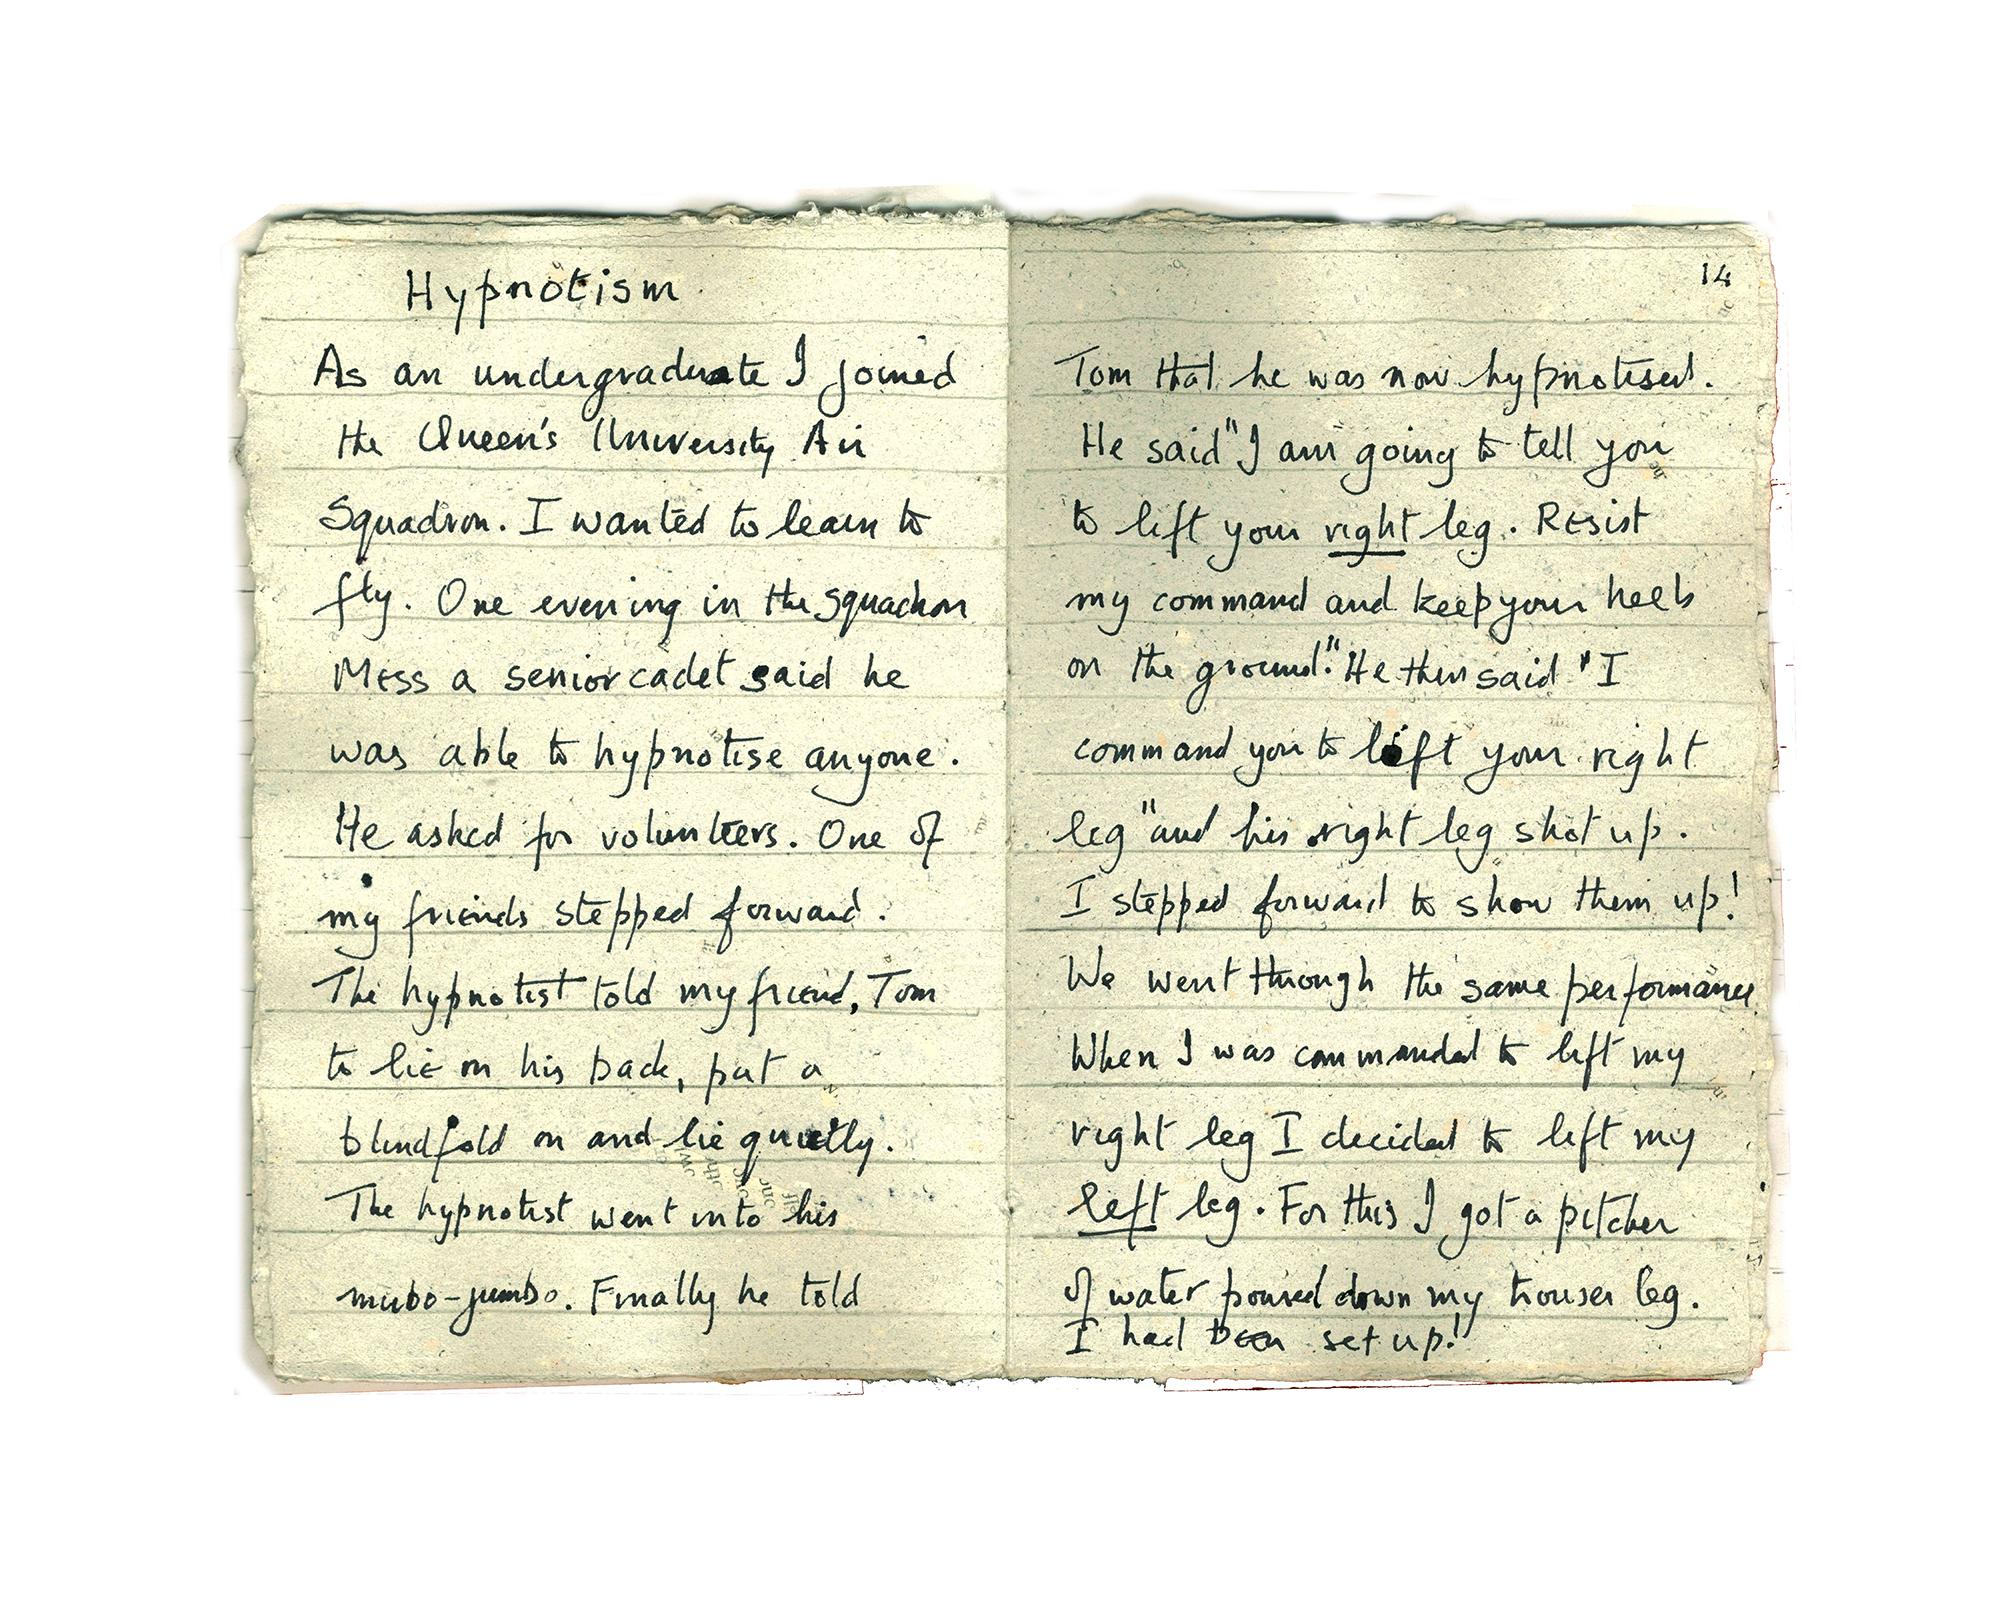 Hypnotism
As an undergraduate I joined
the Queen's University Air
Squadron. I wanted to learn to
fly. One evening in the squadron
Mess a senior cadet said he
was able to hypnotise anyone.
He asked for volunteers. One of
my friends stepped forward.
The hypnotist told my friend, Tom
to lie on his back, put a
blindfold on and lie quietly.
The hypnotist went into his
mubo-jumbo. Finally he told
14
Tom that he was now hypnotised.
He said "I am going to tell you
to lift your right leg. Resist
my command and keep your heels
on the ground." He then said "I
command you to lift your right
leg" and his right leg shot up.
I stepped forward to show them up!
We went through the same performance.
When I was commanded to lift my
right leg I decided to lift my
left leg. For this I got a pitcher
of water poured down my trouser leg.
I had been set up!